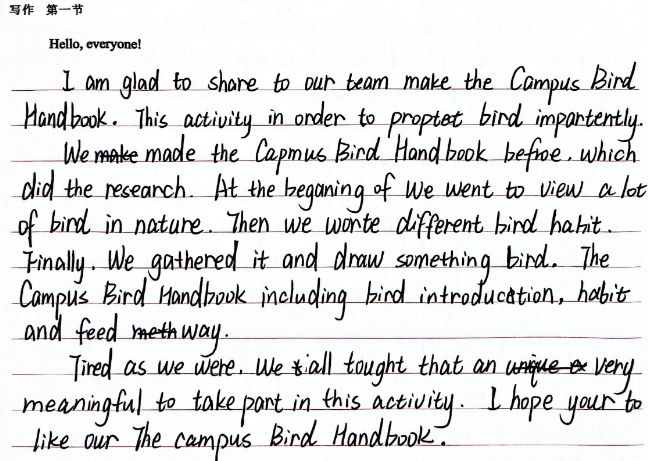 写作 第一节
Hello, everyone!
I am glad to share to our team make the Campus Bird
Handbook. This activity in order to proptet bird impartently.
We make made the Capmus Bird Handbook befroe, which
did the research. At the beganing of we went to view a lot
of bird in nature. Then we wonte different bird habit.
Finally, We gathered it and draw something bird. The
Campus Bird Handbook including bird introducation, habit
and feed meth way.
Tired as we were, We all tought that an unique very
meaningful to take part in this activity. I hope your to
like our The campus Bird Handbook.